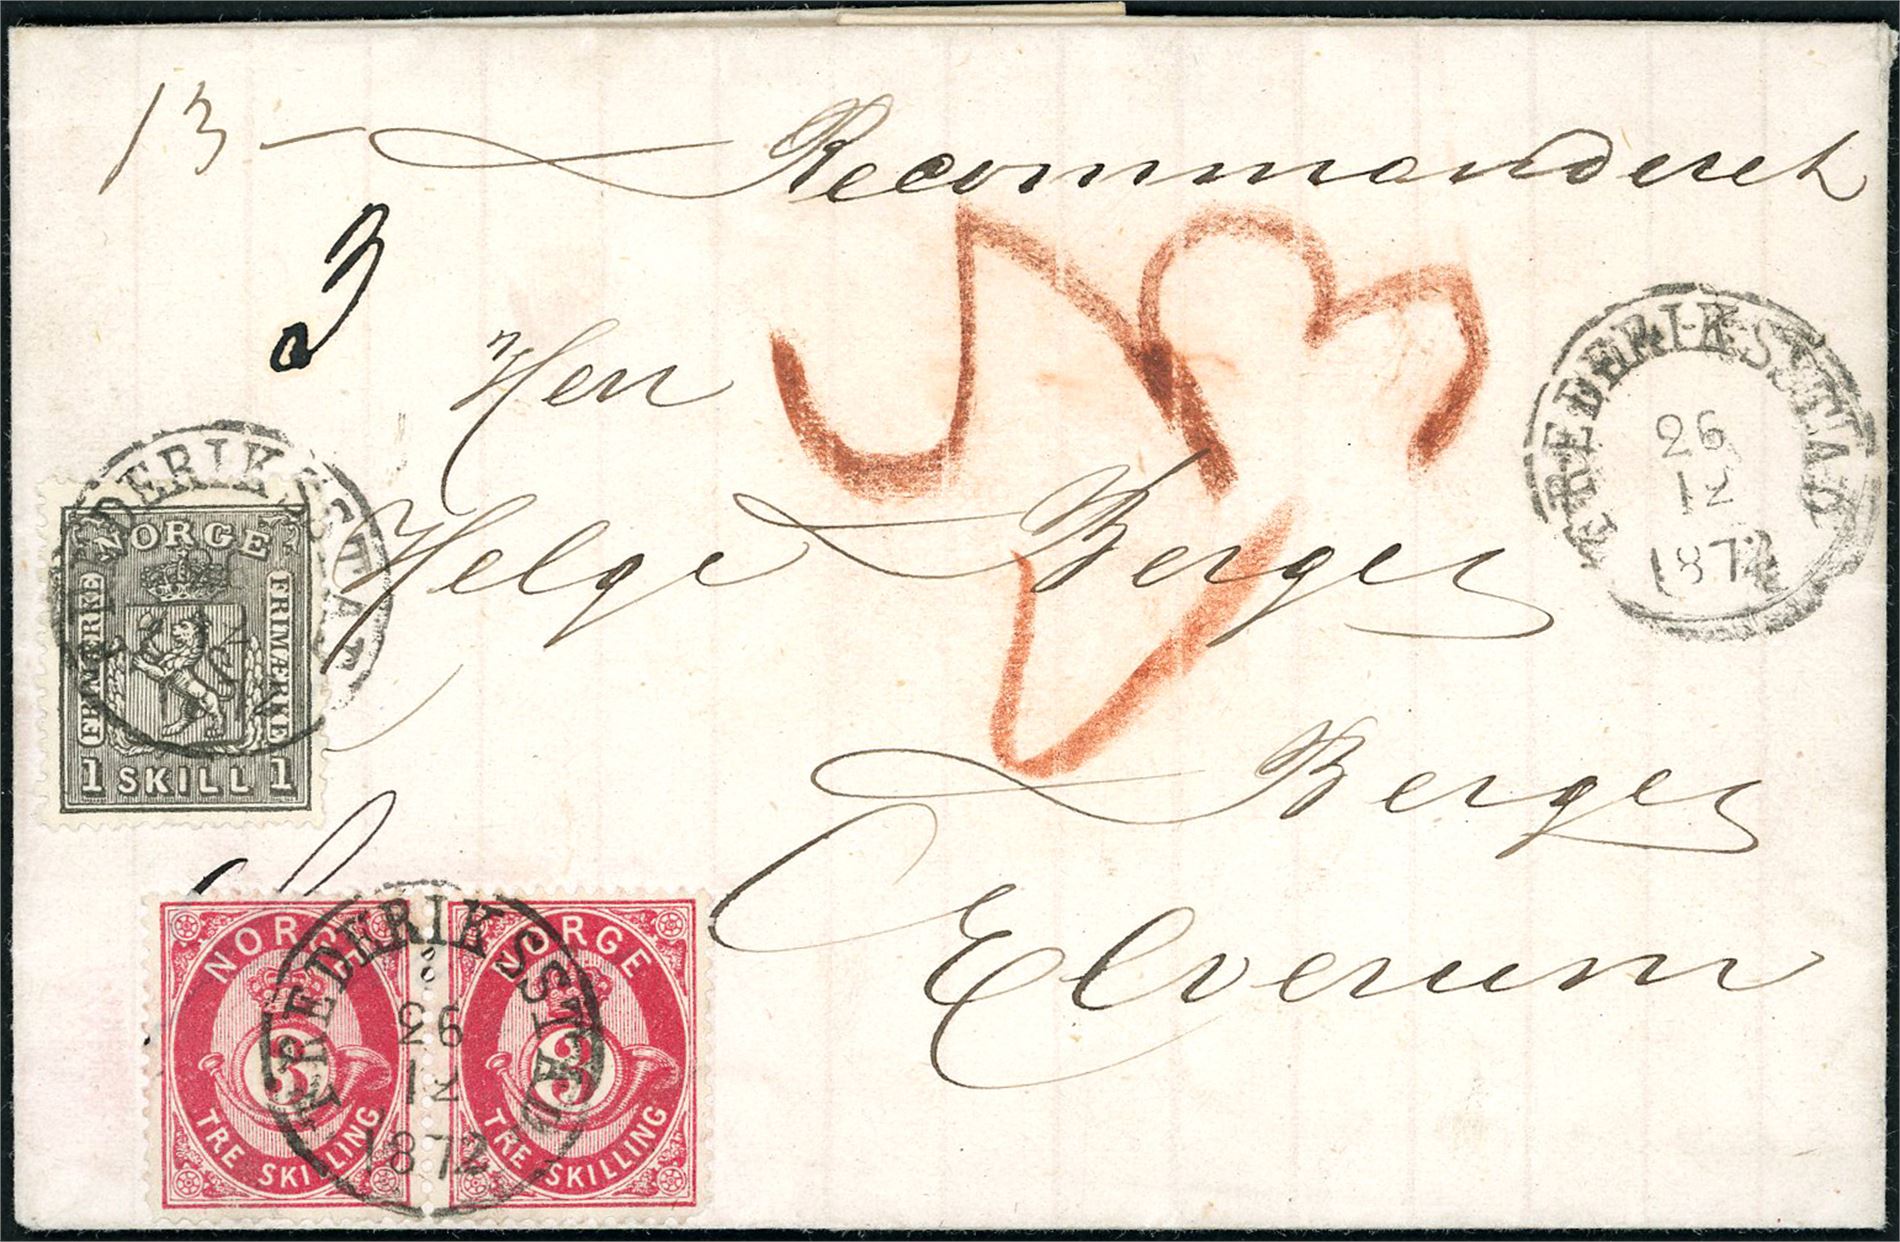 13 — Recommanderet
3
53
Herr
FREDERIKSSTAD
26
12
1872
Helge Berger
FREDERIKSSTAD
NORGE
FRIMÆRKE
FRIMÆRKE
1 SKILL 1
Berger
Elverum
NORGE
3
TRE SKILLING
NORGE
3
TRE SKILLING
FREDERIKSSTAD
26
12
1872